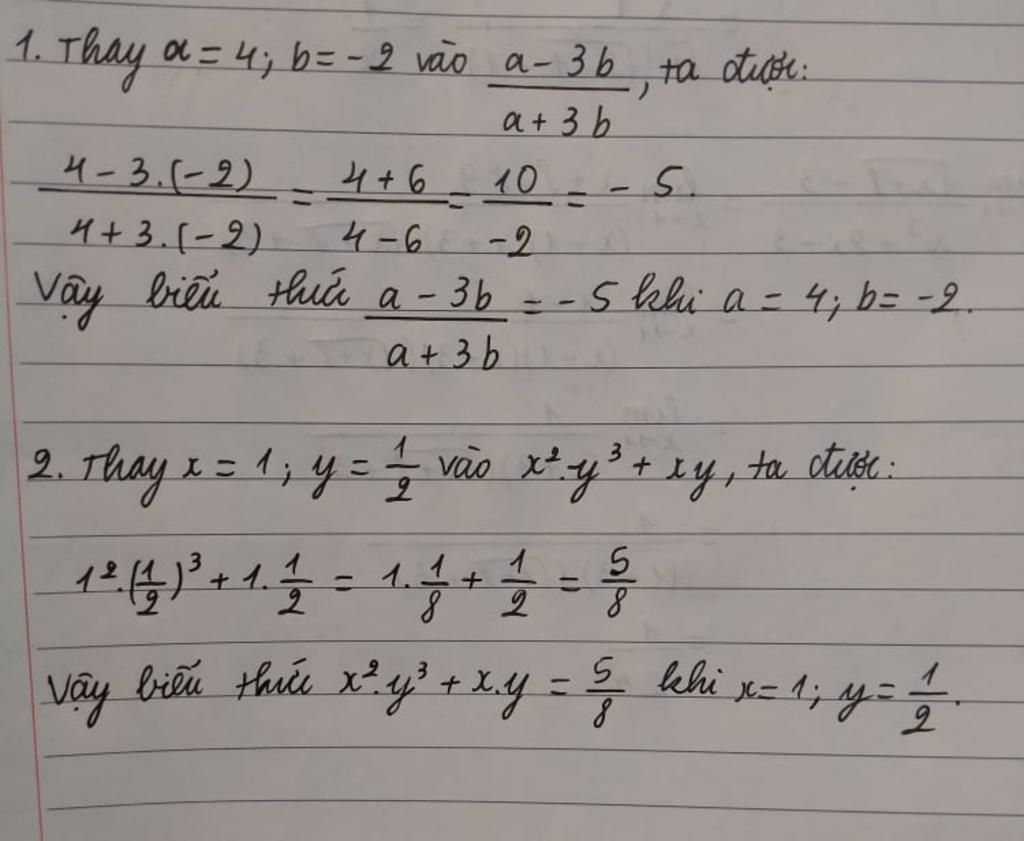 1. Thay a = 4; b = -2 vào \frac{a - 3b}{a + 3b}, ta được:
\frac{4 - 3.(-2)}{4 + 3.(-2)} = \frac{4 + 6}{4 - 6} = \frac{10}{-2} = - 5
Vậy biểu thức \frac{a - 3b}{a + 3b} = - 5 khi a = 4; b = -2.
2. Thay x = 1; y = \frac{1}{2} vào x².y³ + xy, ta được:
1².(\frac{1}{2})³ + 1.\frac{1}{2} = 1.\frac{1}{8} + \frac{1}{2} = \frac{5}{8}
Vậy biểu thức x².y³ + x.y = \frac{5}{8} khi x = 1; y = \frac{1}{2}.